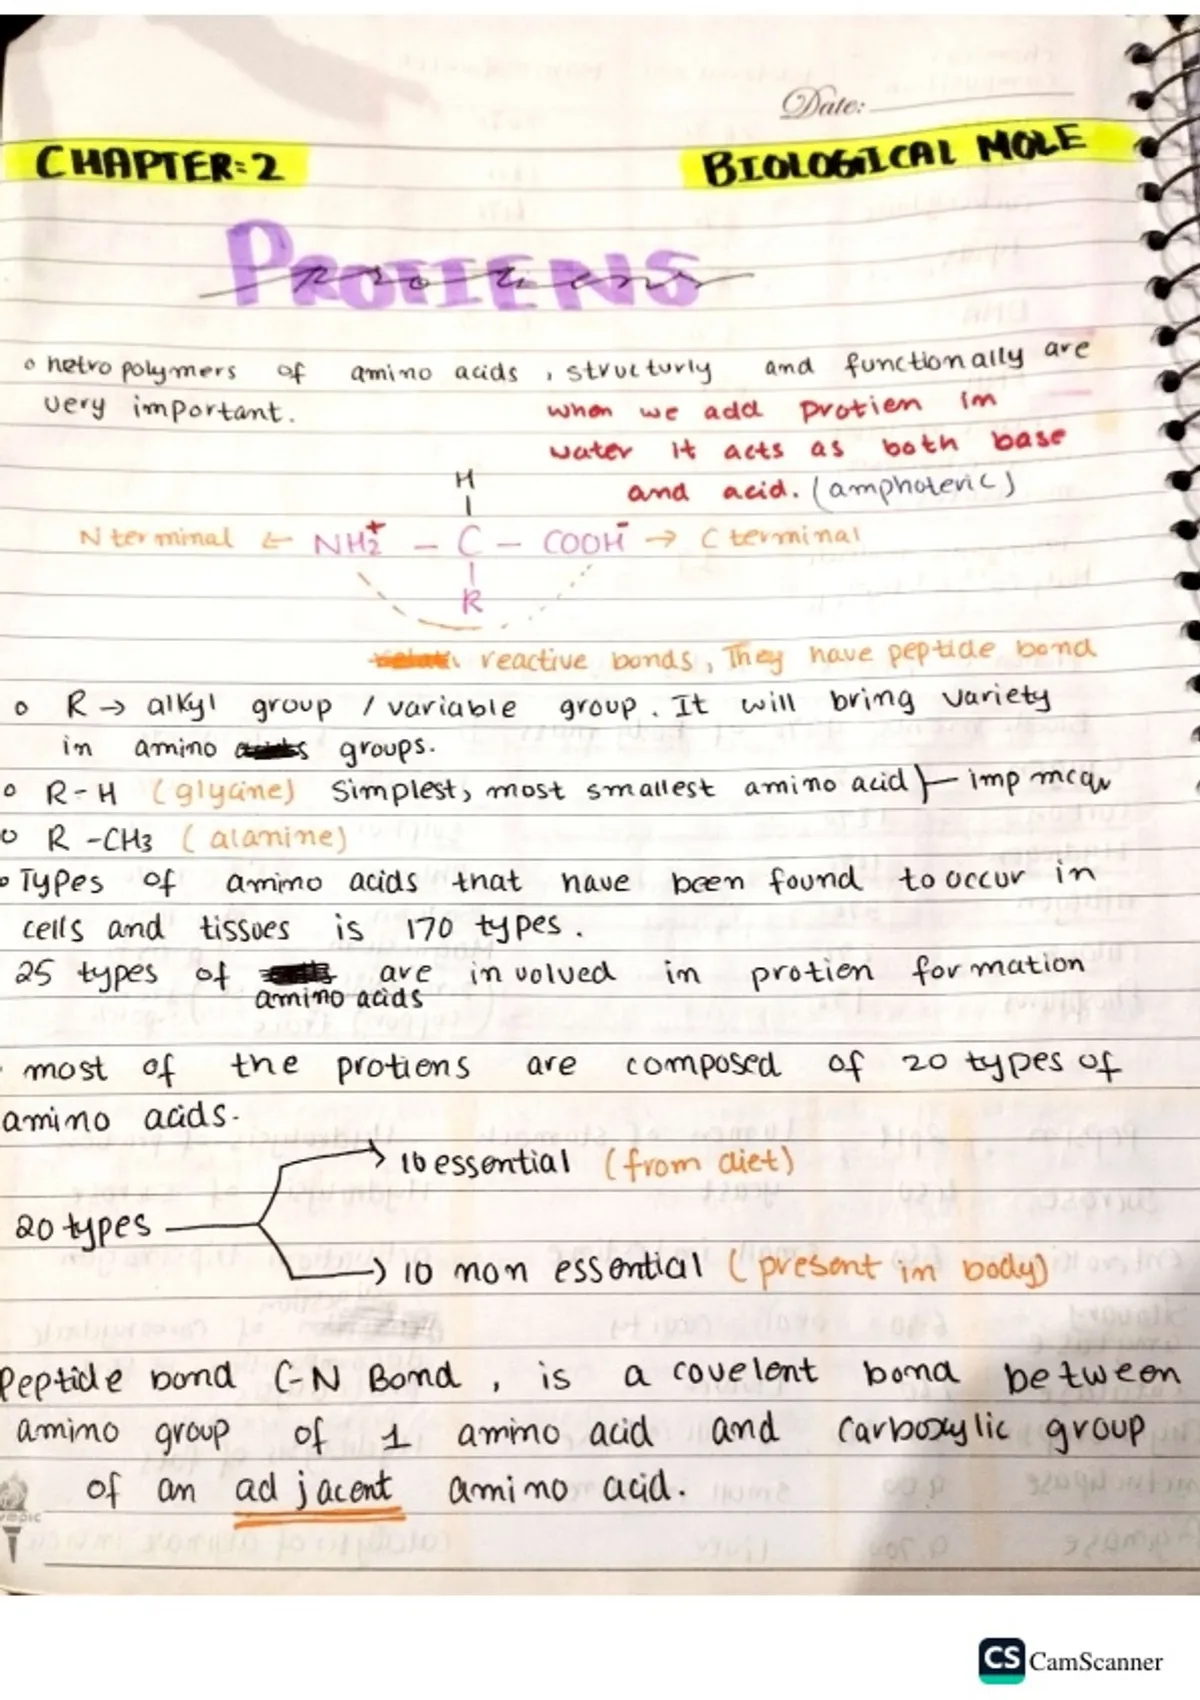 Date:
CHAPTER:2
BIOLOGICAL MOLE
PROTIENS
Protiens
hetro polymers of amino acids, structurly and functionally are
very important.
when we add protien in
water it acts as both base
and acid. (amphoteric)
H
N terminal ← NH2+ – C – COOH- → C terminal
R
reactive bonds, They have peptide bond
R → alkyl group / variable group. It will bring variety
in amino groups.
R-H (glycine) Simplest, most smallest amino acid} imp mcqs
R -CH3 (alanine)
Types of amino acids that have been found to occur in
cells and tissues is 170 types.
25 types of are in volved in protien formation
amino acids
most of the protiens are composed of 20 types of
amino acids.
→ 10 essential (from diet)
20 types
→ 10 non essential (present in body)
Peptide bond C-N Bond, is a covelent bond between
amino group of 1 amino acid and carboxylic group
of an adjacent amino acid.
CS CamScanner